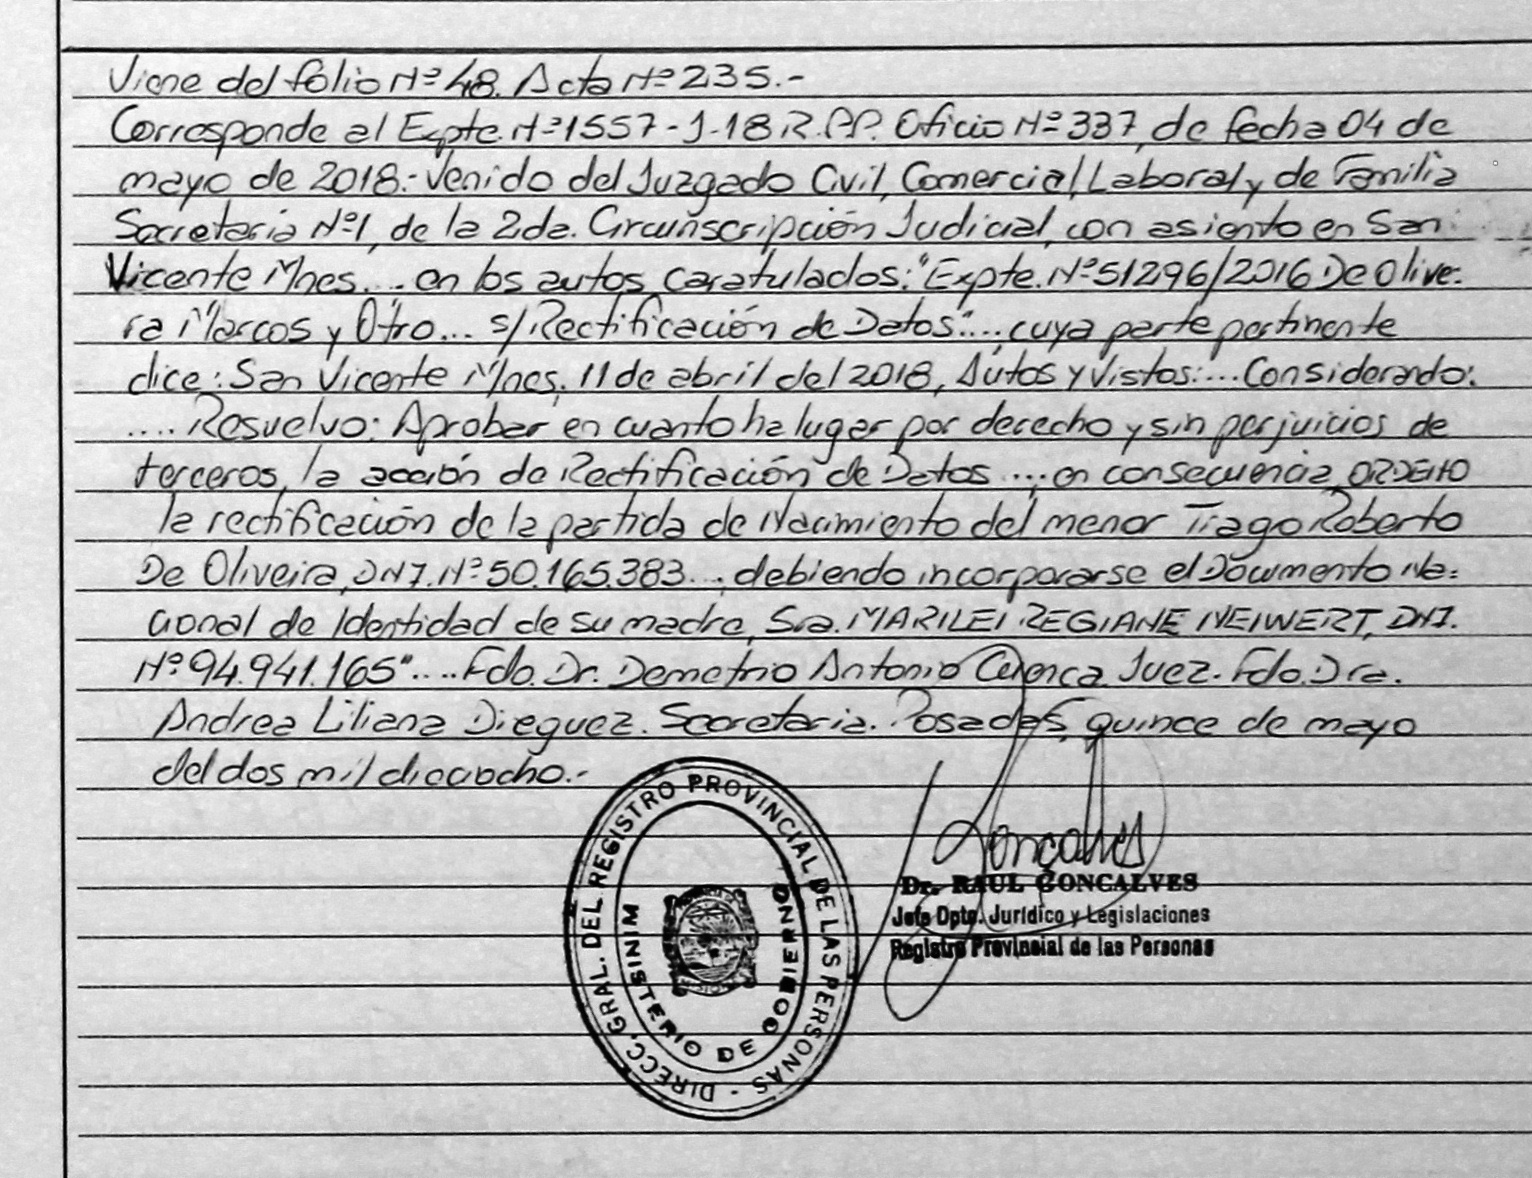 Viene del folio Nº 48. Acta Nº 235.-
Corresponde al Expte. Nº 1557-J-18 R.PP. Oficio Nº 337, de fecha 04 de
mayo de 2018.- Venido del Juzgado Civil, Comercial, Laboral y de Familia
Secretaria Nº 1, de la 2da. Circunscripción Judicial, con asiento en San
Vicente Mnes.... en los autos caratulados: "Expte. Nº 51296/2016 De Olive-
ra Marcos y Otro... s/Rectificación de Datos"...., cuya parte pertinente
dice: San Vicente Mnes, 11 de abril del 2018, Autos y Vistos:.... Considerando:
.... Resuelvo: Aprobar en cuanto ha lugar por derecho y sin perjuicios de
terceros, la acción de Rectificación de Datos ...., en consecuencia, ORDENO
la rectificación de la partida de Nacimiento del menor Tiago Roberto
De Oliveira, DNI. Nº 50.165.383..., debiendo incorporarse el Documento Na=
cional de Identidad de su madre, Sra. MARILEI REGIANE NEIWERT, DNI.
Nº 94.941.165".... Fdo. Dr. Demetrio Antonio Cuenca Juez. Fdo. Dra.
Andrea Liliana Dieguez. Secretaria. Posadas, quince de mayo
del dos mil dieciocho.-
DIRECC. GRAL. DEL REGISTRO PROVINCIAL DE LAS PERSONAS -
MINISTERIO DE GOBIERNO
Gonçalves
Dr. RAUL GONCALVES
Jefe Dpto. Jurídico y Legislaciones
Registro Provincial de las Personas